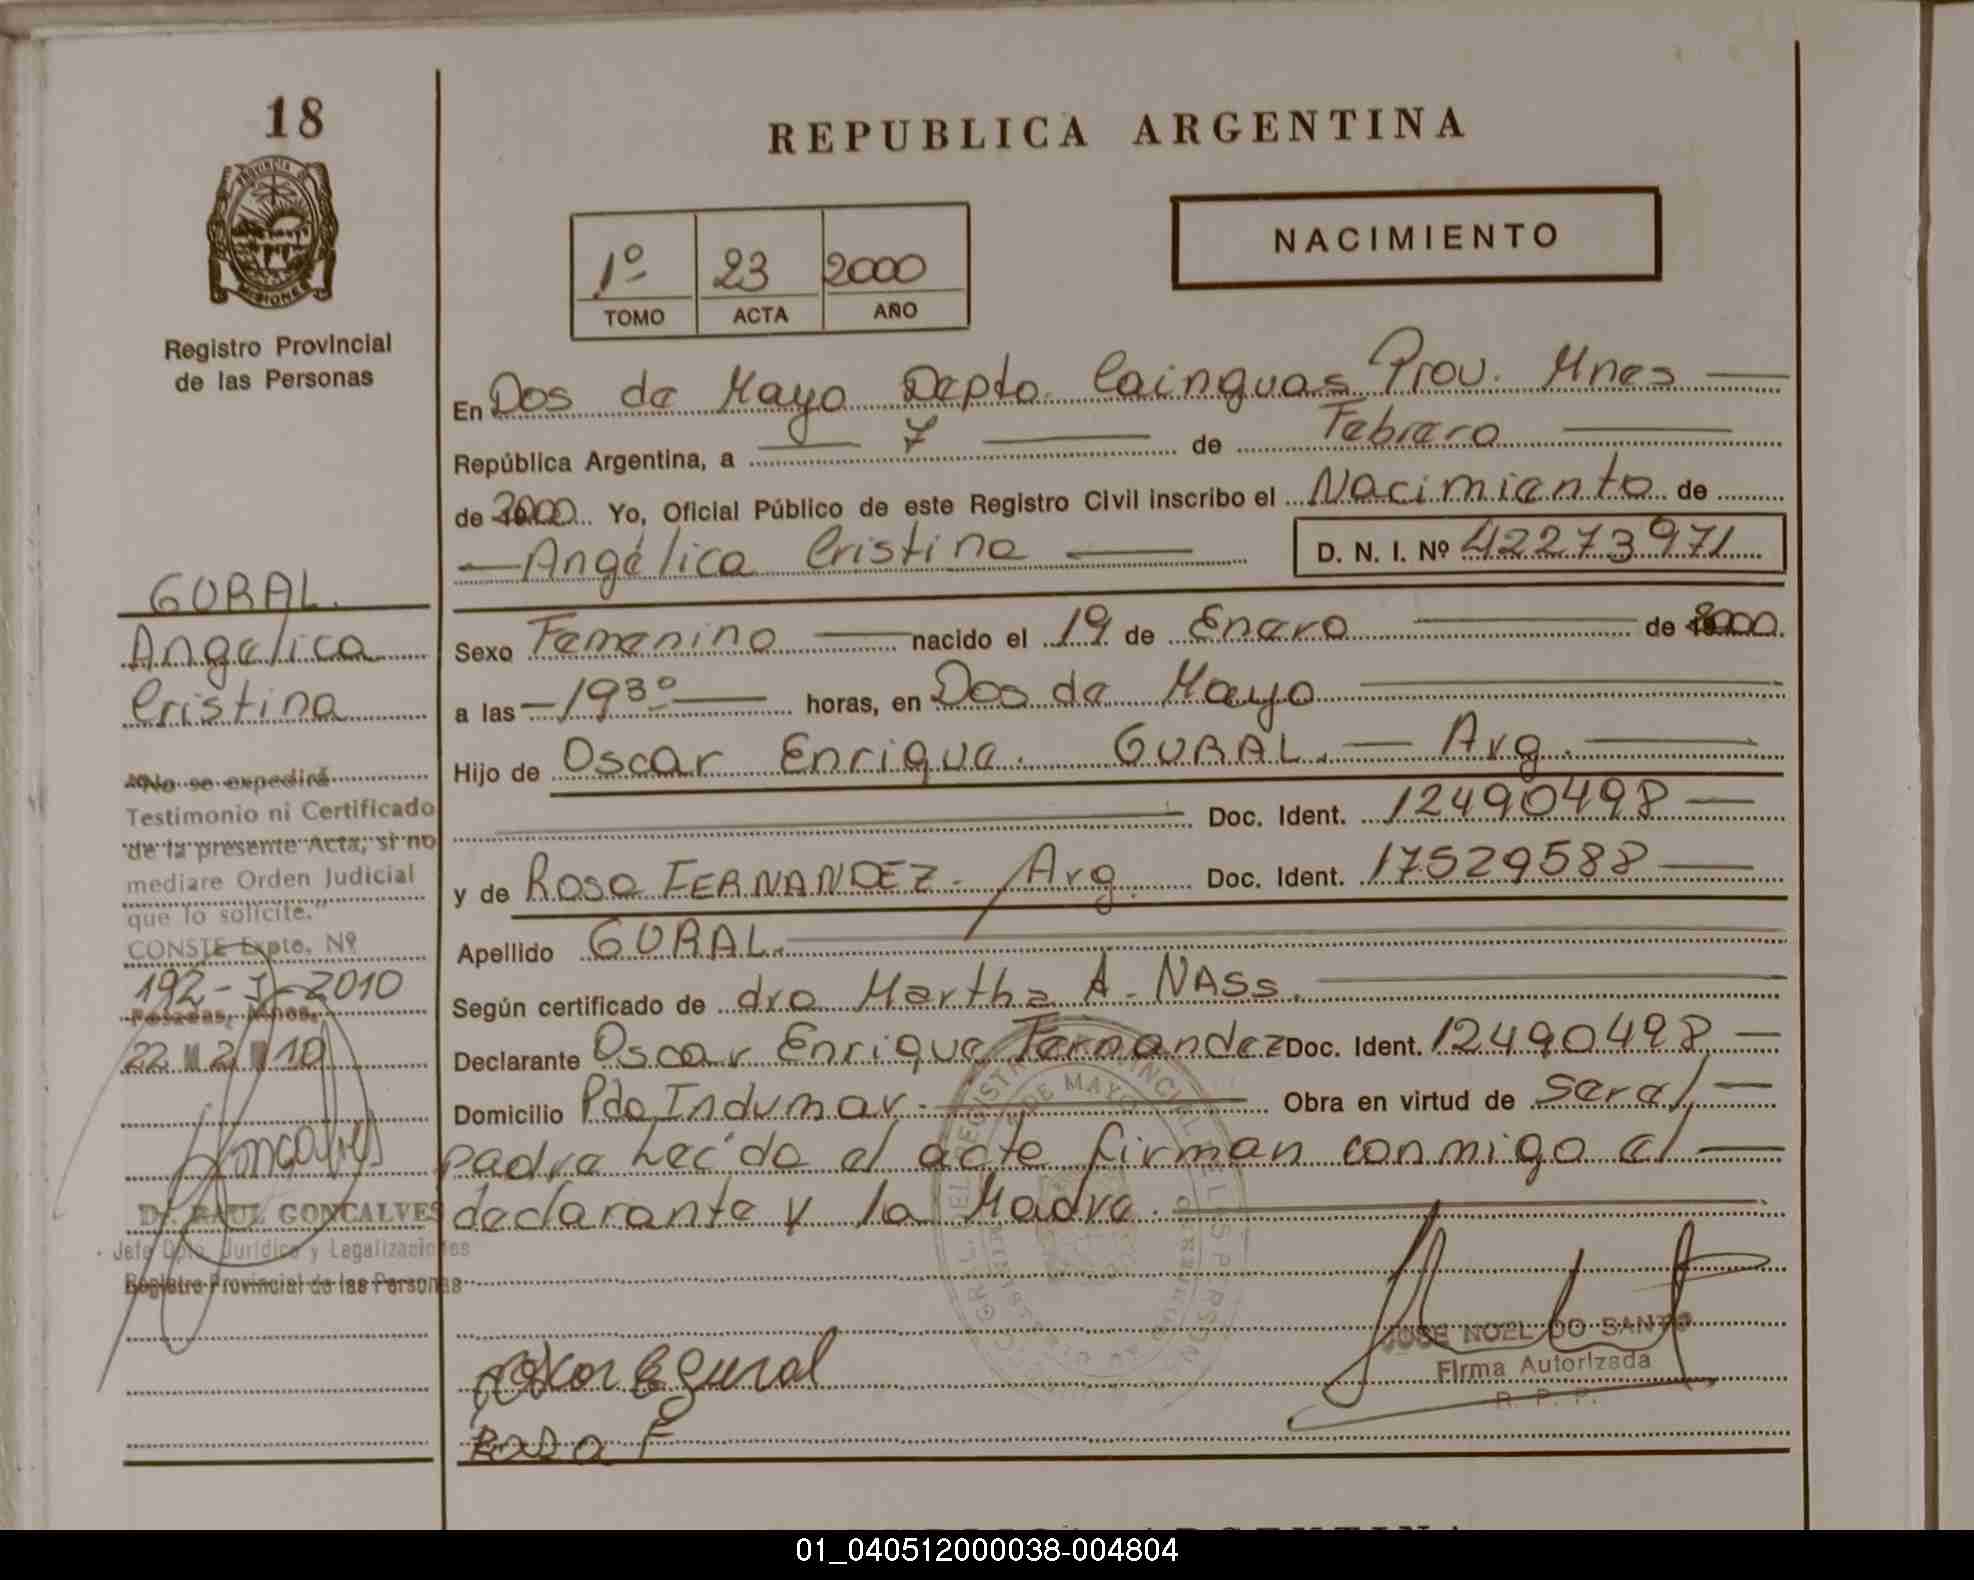 18
PROVINCIA DE
MISIONES
Registro Provincial
de las Personas
GURAL.
Angélica
Cristina
"No se expedirá
Testimonio ni Certificado
de la presente Acta, si no
mediare Orden Judicial
que lo solicite."
CONSTE Expte. Nº
192-J-2010
Posadas, Mnes.
22 2 10
Goncalves
Dr. RAUL GONCALVES
Jefe Dpto. Jurídico y Legalizaciones
Registro Provincial de las Personas
REPUBLICA ARGENTINA
NACIMIENTO
1º 23 2000
TOMO ACTA AÑO
En Dos de Mayo Depto. Cainguas Prov. Mnes
República Argentina, a 7 de Febrero
de 2000 Yo, Oficial Público de este Registro Civil inscribo el Nacimiento de
Angélica Cristina D. N. I. Nº 42273971
Sexo Femenino nacido el 19 de Enero de 2000
a las 19 30 horas, en Dos de Mayo
Hijo de Oscar Enrique GURAL. Arg.
Doc. Ident. 12490498
y de Rosa FERNANDEZ - Arg. Doc. Ident. 17529588
Apellido GURAL.
Según certificado de dra Martha A. NASS.
Declarante Oscar Enrique Fernandez Doc. Ident. 12490498
Domicilio Pdo Indumar Obra en virtud de ser el
padre Leído el acta firman conmigo el
declarante y la Madre.
DE MAYO
Oscar E Gural
JOSE NOEL DO SANTO
Firma Autorizada
R. P. P.
Rosa F
01_040512000038-004804